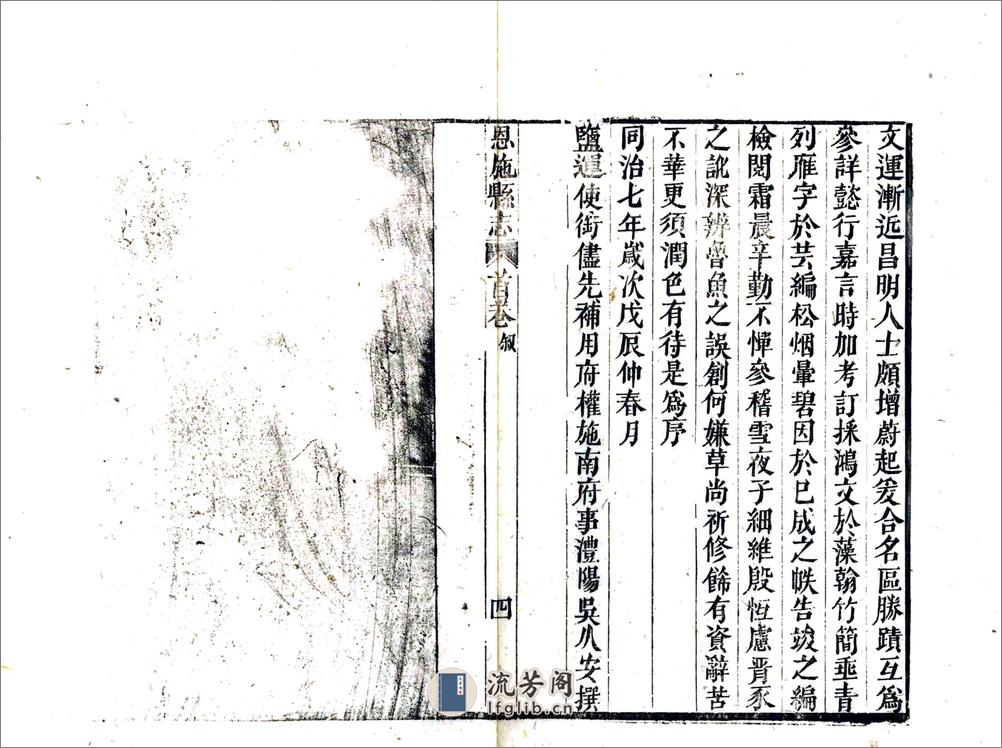 文運漸近昌明人士頗增蔚起爰合名區勝蹟互爲
參詳懿行嘉言時加考訂採鴻文於藻翰竹簡垂青
列雁字於芸編松烟暈碧因於已成之帙告竣之編
檢閱霜晨辛勤不憚參稽雪夜子細維殷恆慮晋豕
之訛深辨魯魚之誤創何嫌草尚祈修餙有資辭苦
不華更須潤色有待是爲序
同治七年歲次戊辰仲春月
鹽運使銜儘先補用府權施南府事澧陽吳八安撰
恩施縣志 首卷 叙 四
流芳阁
lfglib.cn